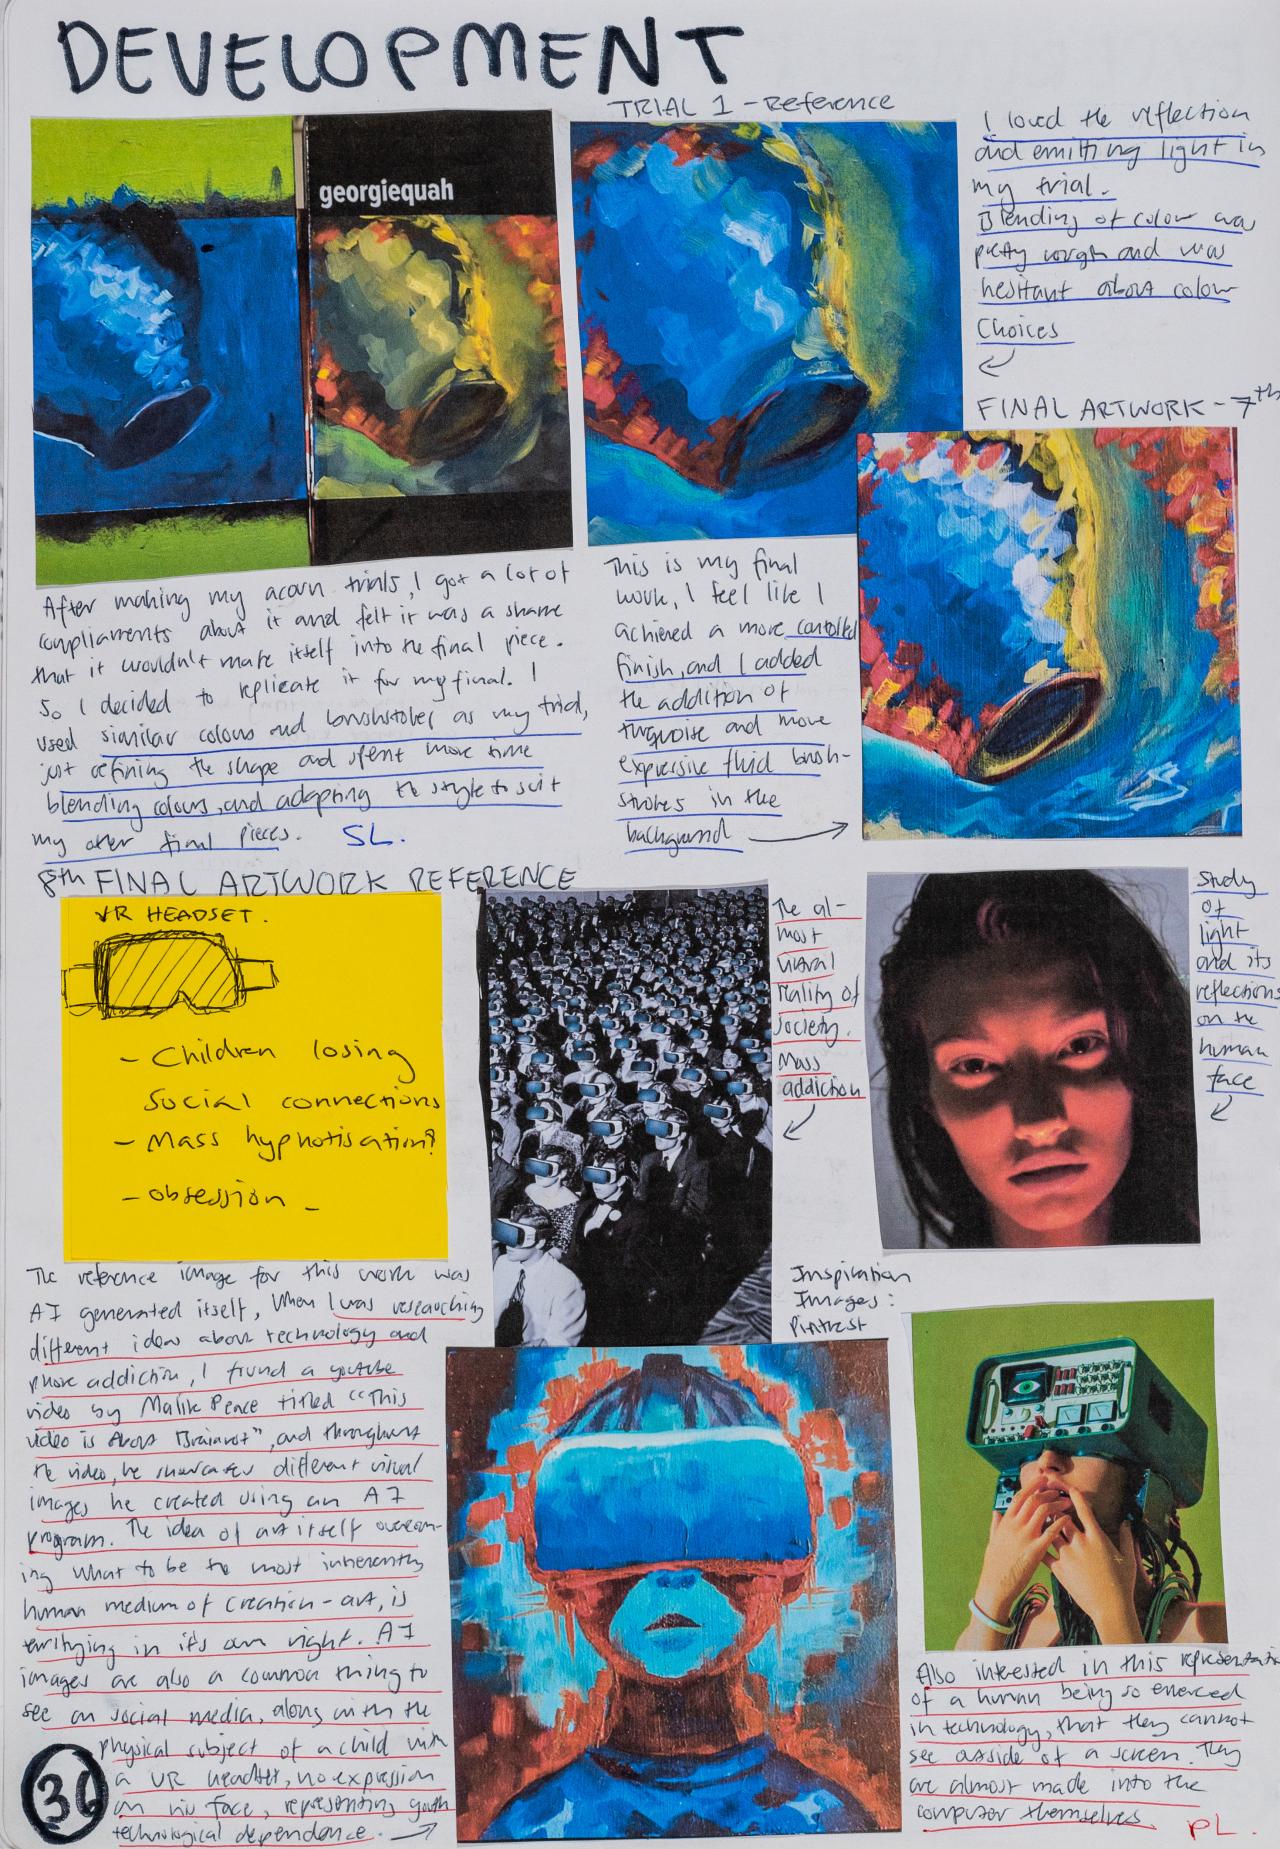 DEVELOPMENT
TRIAL 1 - Reference
georgiequah
I loved the reflection
and emitting light in
my trial.
Blending of colour was
pretty rough and was
hesitant about colour
Choices
FINAL ARTWORK - 7th
After making my acorn trials, I got a lot of
compliaments about it and felt it was a shame
that it wouldn't make itself into the final piece.
So I decided to replicate it for my final. I
used similar colours and brushstokes as my trial,
just refining the shape and spent more time
blending colours, and adapting the style to suit
my other final pieces. SL.
This is my final
work, I feel like I
achieved a more controlled
finish, and I added
the addition of
turquoise and more
expressive fluid brush-
strokes in the
background
8th FINAL ARTWORK REFERENCE
VR HEADSET.
- Children losing
Social connections
- Mass hypnotisation?
- obsession
The al-
most
literal
reality of
society.
Mass
addiction
Study
of
light
and its
reflections
on the
human
face
The reference image for this work was
AI generated itself, when I was researching
different ideas about technology and
phone addiction, I found a youtube
video by Malik Peace titled "This
video is About Brainrot", and throughout
the video, he showcases different visual
images he created using an AI
program. The idea of art itself overcom-
ing what to be the most inherently
human medium of creation - art, is
terrifying in it's own right. AI
images are also a common thing to
see on social media, along with the
physical subject of a child with
a VR headset, no expression
on his face, representing youth
technological dependence.
36
Inspiration
Images:
Pintrest
Also interested in this representation
of a human being so emerced
in technology, that they cannot
see outside of a screen. They
are almost made into the
computer themselves. PL.